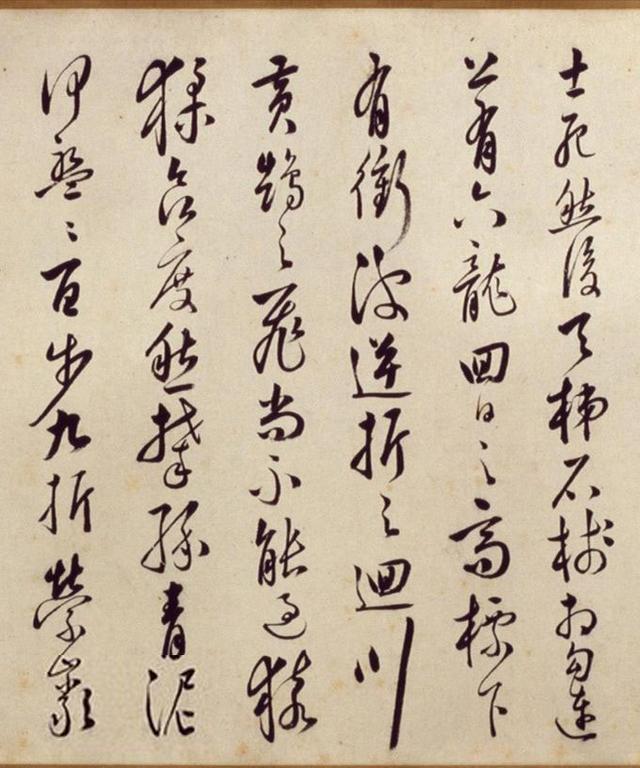 士死然後天梯石棧相勾連
上有六龍回日之高標下
有衝波逆折之迴川
黃鶴之飛尚不能過猿
猱欲度愁攀緣青泥
何盤〻百步九折縈巖